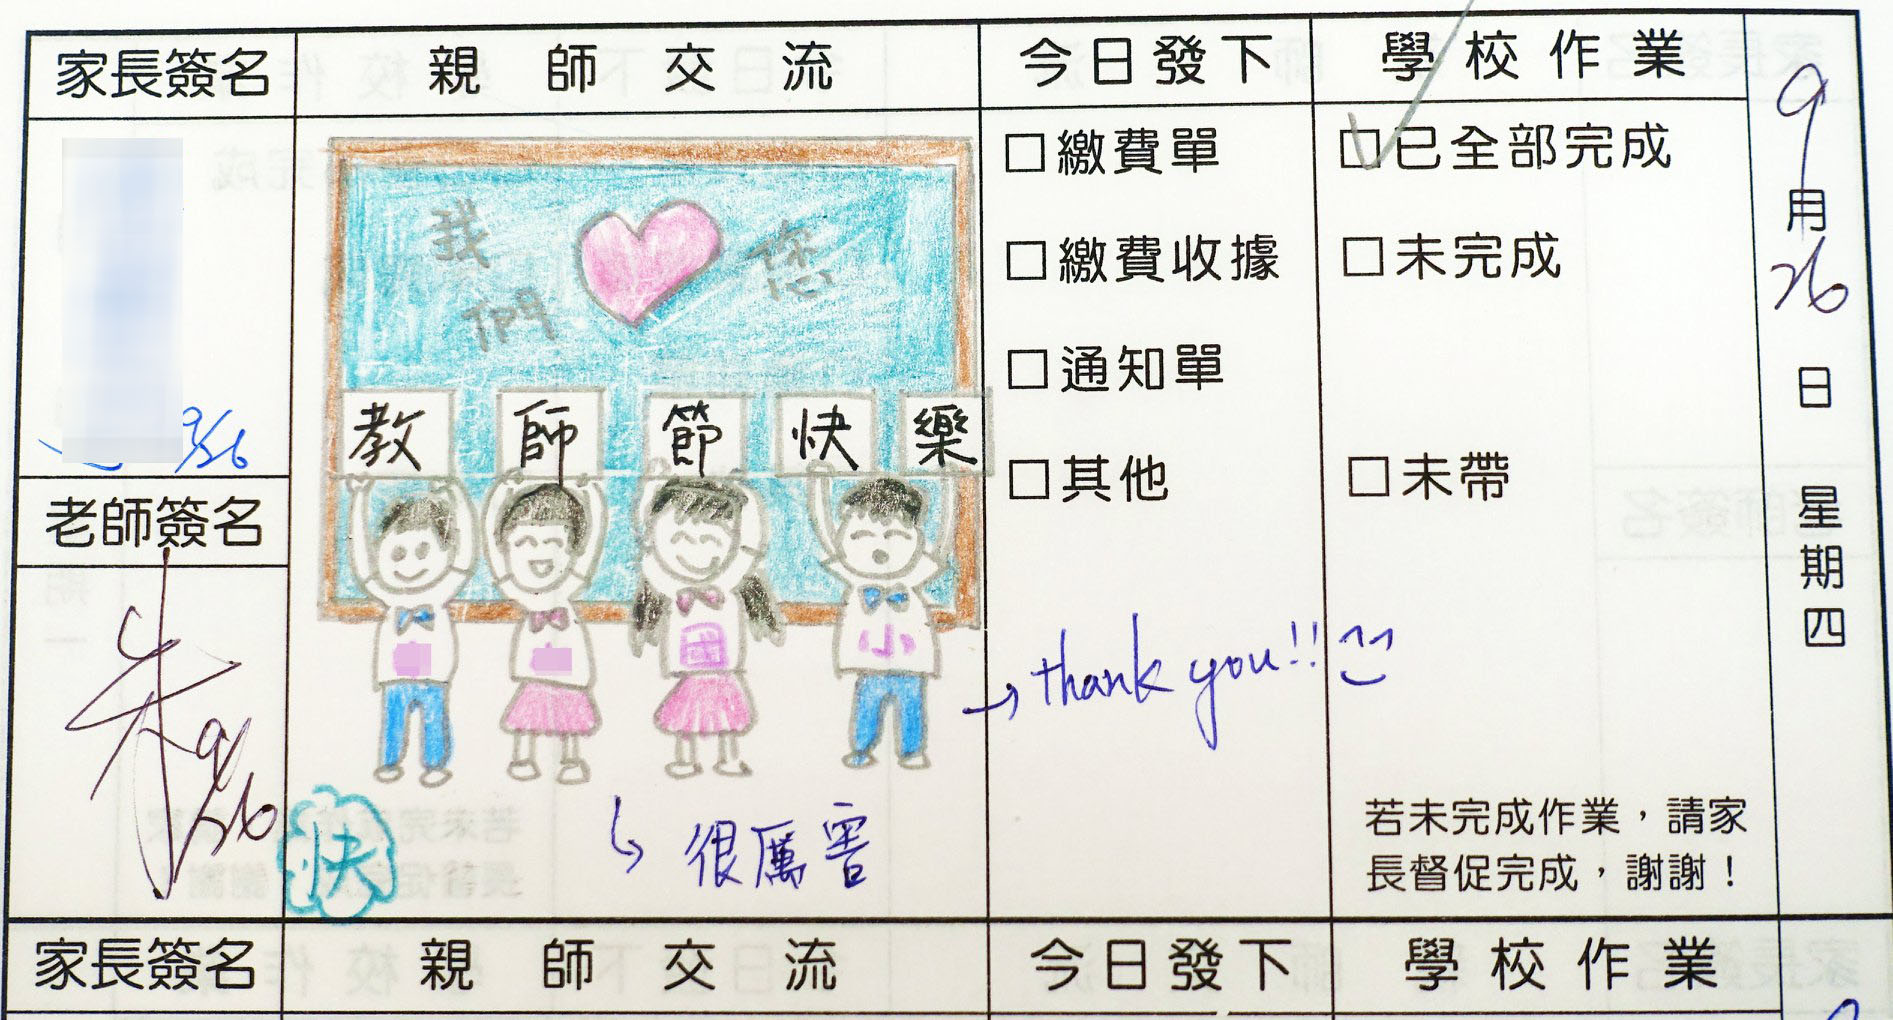 家長簽名 親師交流 今日發下 學校作業
9月26日 星期四
我們 您
教師節快樂
國 小
9/26
□繳費單
□繳費收據
□通知單
□其他
□已全部完成
□未完成
□未帶
老師簽名
朱 9/26
thank you!!
快
很厲害
若未完成作業,請家
長督促完成,謝謝!
家長簽名 親師交流 今日發下 學校作業